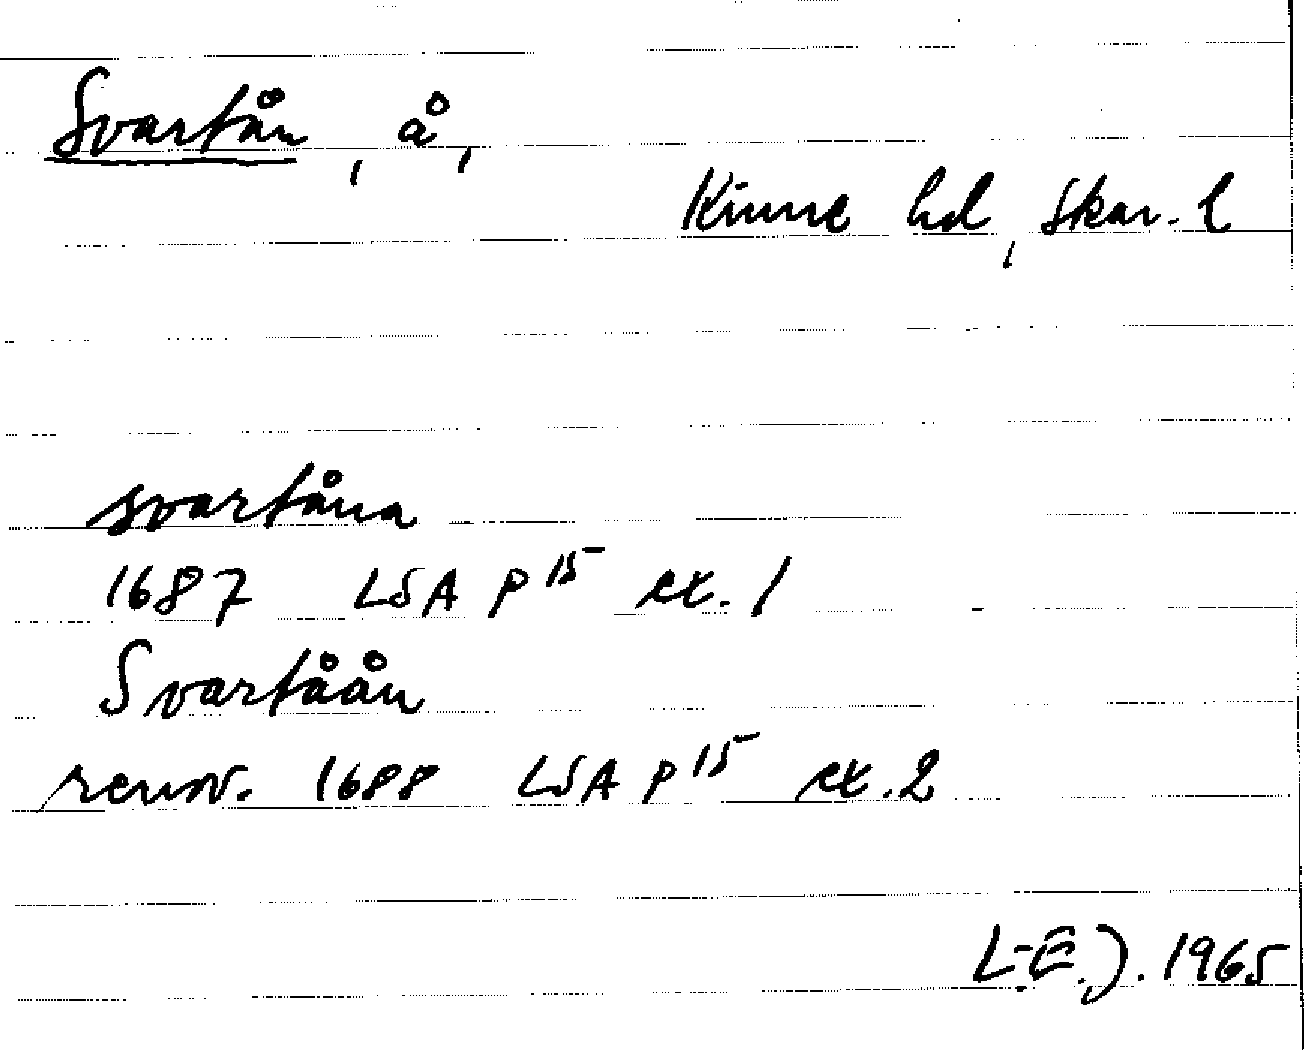 Svartån, å,
Kinne hd, Skar. l
svartåna
1687 LSA P15 ex. 1
Svartåån
renov. 1688 LSA P15 ex. 2
L-E. J. 1965